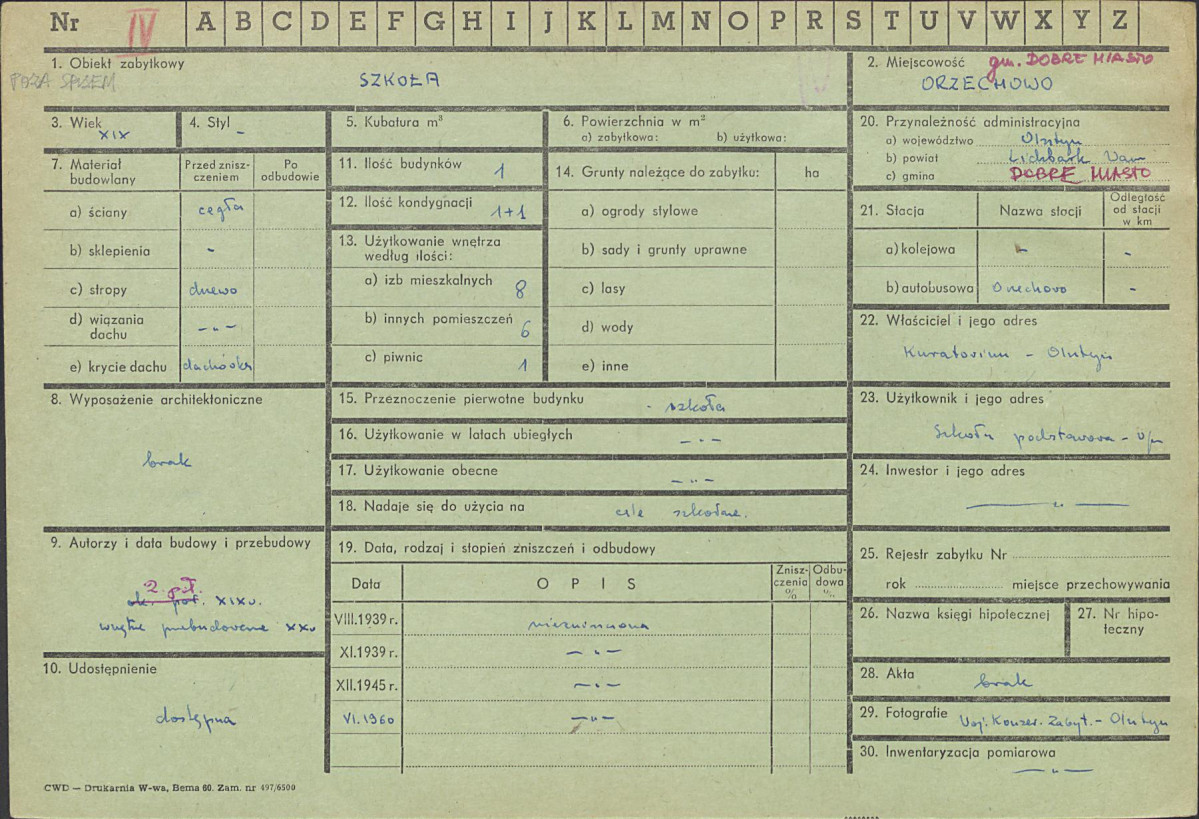 Nr IV A B C D E F G H I J K L M N O P R S T U V W X Y Z
1. Obiekt zabytkowy
POZA SPISEM
SZKOŁA
2. Miejscowość gm. DOBRE MIASTO
ORZECHOWO
3. Wiek
XIX
4. Styl
-
5. Kubatura m³
6. Powierzchnia w m²
a) zabytkowa: b) użytkowa:
20. Przynależność administracyjna
a) województwo Olsztyn
b) powiat Lidzbark Warm
c) gmina DOBRE MIASTO
7. Materiał budowlany
Przed znisz-
czeniem
Po
odbudowie
a) ściany cegła
b) sklepienia -
c) stropy drewo
d) wiązania
dachu -"-
e) krycie dachu dachówka
11. Ilość budynków 1
12. Ilość kondygnacji 1+1
13. Użytkowanie wnętrza
według ilości:
a) izb mieszkalnych 8
b) innych pomieszczeń 6
c) piwnic 1
14. Grunty należące do zabytku: ha
a) ogrody stylowe
b) sady i grunty uprawne
c) lasy
d) wody
e) inne
21. Stacja Nazwa stacji
Odległość
od stacji
w km
a) kolejowa - -
b) autobusowa Orzechowo -
22. Właściciel i jego adres
Kuratorium - Olsztyn
8. Wyposażenie architektoniczne
brak
15. Przeznaczenie pierwotne budynku - szkoła
16. Użytkowanie w latach ubiegłych -"-
17. Użytkowanie obecne -"-
18. Nadaje się do użycia na cele szkolne.
23. Użytkownik i jego adres
Szkoła podstawowa - w/m
24. Inwestor i jego adres
-"-
9. Autorzy i data budowy i przebudowy
2. poł.
ok. poł. XIX w.
wnętrze przebudowane XX w
19. Data, rodzaj i stopień zniszczeń i odbudowy
Data OPIS
Znisz-
czenia
%
Odbu-
dowa
%
VIII.1939 r. niezniszczona
XI.1939 r. -"-
XII.1945 r. -"-
VI.1960 -"-
25. Rejestr zabytku Nr
rok miejsce przechowywania
26. Nazwa księgi hipotecznej
27. Nr hipo-
teczny
10. Udostępnienie
dostępna
28. Akta
brak
29. Fotografie Woj. Konser. Zabyt. - Olsztyn
30. Inwentaryzacja pomiarowa
-"-
CWD — Drukarnia W-wa, Bema 60. Zam. nr 497/6500